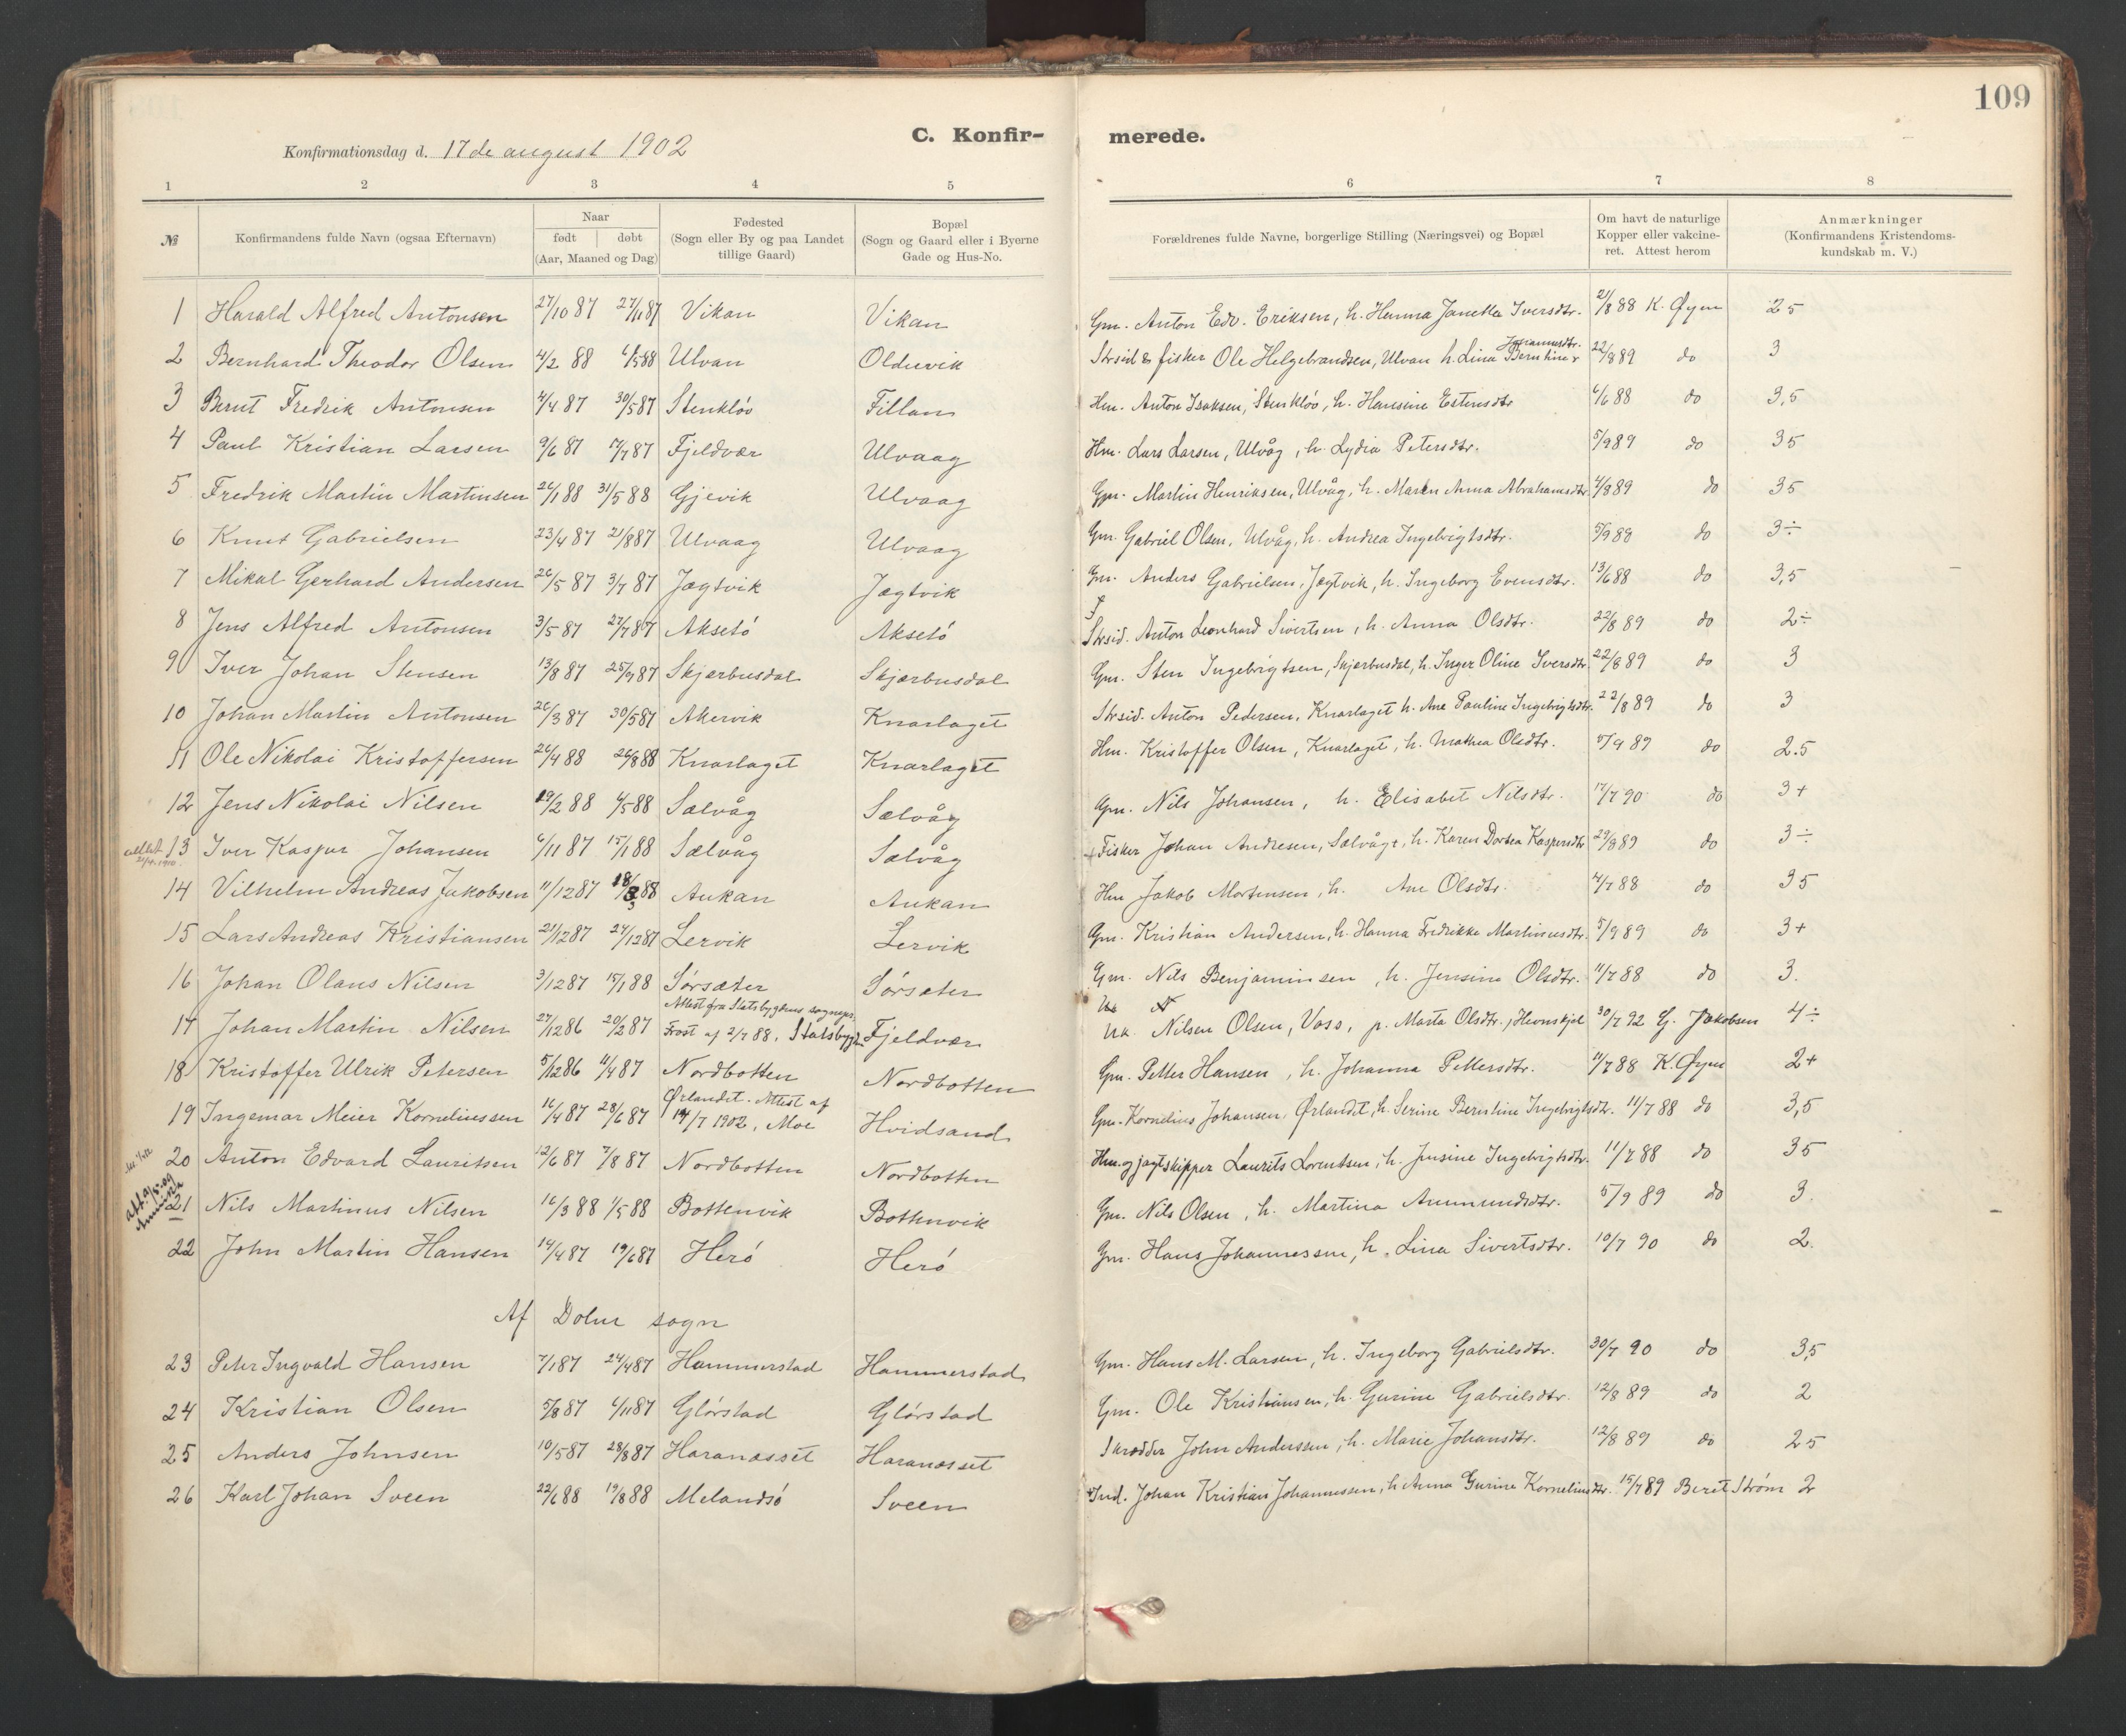 109
C. Konfir- merede.
Konfirmationsdag d. 17de august 1902
1 2 3 4 5 6 7 8
№ Konfirmandens fulde Navn (ogsaa Efternavn) Naar født døbt (Aar, Maaned og Dag) Fødested (Sogn eller By og paa Landet tillige Gaard) Bopæl (Sogn og Gaard eller i Byerne Gade og Hus-No. Forældrenes fulde Navne, borgerlige Stilling (Næringsvei) og Bopæl Om havt de naturlige Kopper eller vakcineret. Attest herom Anmærkninger (Konfirmandens Kristendomskundskab m. V.)
1 Harald Alfred Antonsen 27/10 87 27/11 87 Vikan Vikan Gm. Anton Edv. Eriksen, h. Hanna Janetta Iversdtr. 21/8 88 K. Øyen 2 5
2 Bernhard Theodor Olsen 4/2 88 6/5 88 Ulvan Oldervik Strsid & fisker Ole Helgebrandsen, Ulvan h. Lina Berntine Johannesdtr. 22/8 89 do 3
3 Bernt Fredrik Antonsen 4/4 87 30/5 87 Stenkløv Fillan Hm. Anton Isaksen, Stenkløv, h. Hansine Estensdtr 6/6 88 do 3,5
4 Paul Kristian Larsen 9/6 87 17/7 87 Fjeldvær Ulvaag Hm. Lars Larsen, Ulvåg, h. Lydia Petersdtr. 5/9 89 do 35
5 Fredrik Martin Martinsen 26/1 88 31/5 88 Gjevik Ulvaag Gm. Martin Henriksen, Ulvåg, h. Maren Anna Abrahamsdtr 4/8 89 do 35
6 Knut Gabrielsen 23/4 87 21/8 87 Ulvaag Ulvaag Gm. Gabriel Olsen, Ulvåg, h. Andrea Ingebrigtsdtr. 5/9 88 do 3÷
7 Mikal Gerhard Andersen 26/5 87 3/7 87 Jægtvik Jægtvik Gm. Anders Gabrielsen, Jægtvik, h. Ingeborg Evensdtr. 13/6 88 do 3,5
8 Jens Alfred Antonsen 3/5 87 27/7 87 Aksetö Aksetö Strsid. Anton Leonhard Sivertsen, h. Anna Olsdtr. 22/8 89 do 2÷
9 Iver Johan Stensen 13/8 87 25/9 87 Skjærbusdal Skjærbusdal Gm. Sten Ingebrigtsen, Skjærbusdal, h. Inger Oline Iversdtr. 22/8 89 do 3
10 Johan Martin Antonsen 26/3 87 30/5 87 Akervik Knarlaget Strsid. Anton Pedersen, Knarlaget h. Ane Pauline Ingebrigtsdtr. 22/8 89 do 3
11 Ole Nikolai Kristoffersen 26/4 88 26/8 88 Knarlaget Knarlaget Hm. Kristoffer Olsen, Knarlaget, h. Mathea Olsdtr. 5/9 89 do 2.5
12 Jens Nikolai Nilsen 19/2 88 6/5 88 Sælvåg Sælvåg Gm. Nils Johansen, h. Elisabet Nilsdtr. 17/7 90 do 3+
13 Iver Kaspar Johansen 6/11 87 15/1 88 Sælvåg Sælvåg Fisker Johan Andresen, Sælvåg, h. Karen Dortea Kaspersdtr 29/8 89 do 3÷
14 Vilhelm Andreas Jakobsen 11/12 87 18/3 88 Aukan Aukan Hm Jakob Mortensen, h. Ane Olsdtr. 4/7 88 do 35
15 Lars Andreas Kristiansen 21/12 87 27/12 87 Lervik Lervik Gm. Kristian Andersen, h. Hanna Fredrikke Martinusdtr. 5/9 89 do 3+
16 Johan Olaus Nilsen 3/12 87 15/1 88 Sørsæter Sørsæter Gm. Nils Benjaminsen, h. Jensine Olsdtr. 11/7 88 do 3.
Attest fra Statsbygdens sognepr.
17 Johan Martin Nilsen 27/12 86 20/2 87 Frost af 2/7 88. Statsbygd Fjeldvær Uk. Nilsen Olsen, Voss, p. Marta Olsdtr., Hevnskjel 30/7 92 G. Jakobsen 4÷
18 Kristoffer Ulrik Petersen 5/12 86 11/4 87 Nordbotten Nordbotten Gm. Petter Hansen, h. Johanna Pettersdtr. 11/7 88 K. Øyen 2+
19 Ingemar Meier Korneliussen 16/4 87 28/6 87 Ørlandet. Attest af 14/7 1902, Moe Hvidsand Gm. Kornelius Johansen, Ørlandet, h. Serine Berntine Ingebrigtsdtr. 11/7 88 do 3,5
20 Anton Edvard Lauritsen 12/6 87 7/8 87 Nordbotten Nordbotten Hm. og jagtskipper Laurits Lorentsen, h. Jensine Ingebrigtsdtr. 11/7 88 do 35
21 Nils Martinus Nilsen 16/3 88 1/5 88 Bottenvik Bottenvik Gm. Nils Olsen, h. Martina Ammundsdtr. 5/9 89 do 3.
22 John Martin Hansen 14/4 87 19/6 87 Herö Herö Gm. Hans Johannessen, h. Lina Sivertsdtr. 10/7 90 do 2.
Af Dolm sogn
23 Peter Ingvald Hansen 7/1 87 24/4 87 Hammerstad Hammerstad Gm. Hans M. Larsen, h. Ingeborg Gabrielsdtr. 30/7 90 do 3,5
24 Kristian Olsen 5/8 87 6/11 87 Glørstad Glørstad Gm. Ole Kristiansen, h. Gurine Gabrielsdtr. 12/8 89 do 2
25 Anders Johnsen 10/5 87 28/8 87 Haranæsset Haranæsset Skrædder John Anderssen, h. Marie Johansdtr. 12/8 89 do 2 5
26 Karl Johan Sveen 22/6 88 19/8 88 Melandsö Sveen Ind. Johan Kristian Johannessen, h Anna Gurine Korneliusdtr. 15/7 89 Beret Strøm 2